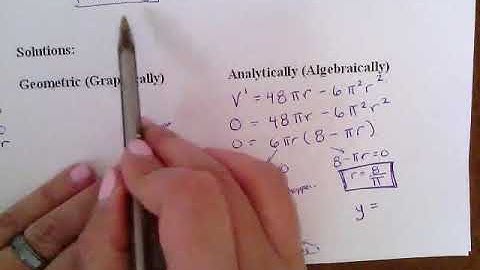 Solutions:
Geometric (Graphically)
Analytically (Algebraically)
V' = 48πr - 6π²r²
0 = 48πr - 6π²r²
0 = 6πr(8 - πr)
0 8-πr=0
r = 8/π
y =